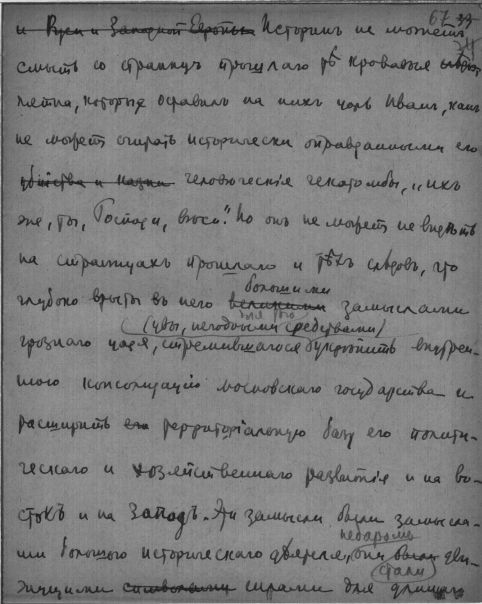 67 39
и Руси и Западной Европы Историкъ не можетъ
смыть со страницъ прошлаго тѣ кровавыя
пятна, которыя оставилъ на нихъ царь Иванъ, какъ
не можетъ считать исторически оправданными его
убійства и казни человѣческія гекатомбы, „ихъ
же, ты, Господи, вѣси“. Но онъ не можетъ не видѣть
на страницахъ прошлаго и тѣхъ слѣдовъ, что
большими
глубоко врыты въ него великими замыслами
для того
(увы, негодными средствами)
грознаго царя, стремившагося укрѣпить внутрен-
нюю консолидацію московскаго государства и
расширить его территоріальную базу его полити-
ческаго и хозяйственнаго развитія и на во-
стокъ и на Западъ. Эти замыслы были замысла-
недаромъ
ми большого историческаго дѣятеля, они были дви-
стали
жущими символами силами для